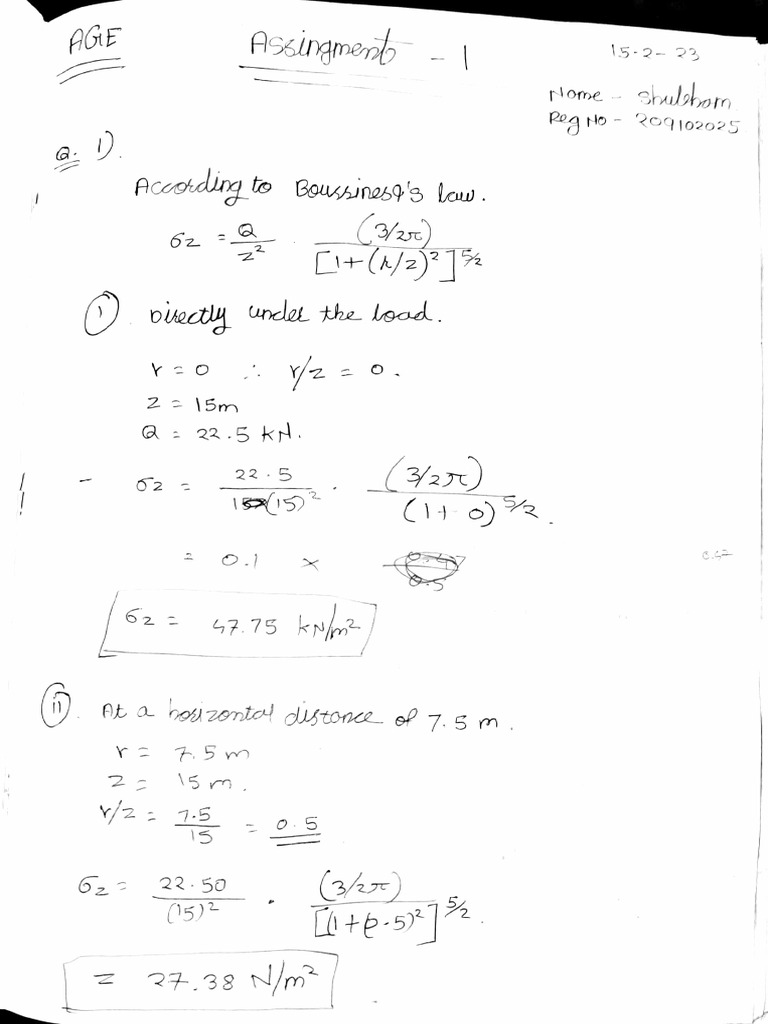 AGE
Assingment - 1
15-2-23
Name - Shubham
Reg No - 209102025
Q. 1).
According to Boussinesq's law.
σz = Q/z² . (3/2π)/[1+(r/z)²]^5/2
(i) Directly under the load.
r = 0 ∴ r/z = 0.
z = 15m
Q = 22.5 KN.
- σz = 22.5/(15)² . (3/2π)/(1+0)^5/2.
= 0.1 ×
0.47
σz = 47.75 kN/m²
(ii). At a horizontal distance of 7.5 m.
r = 7.5 m
z = 15 m.
r/z = 7.5/15 = 0.5
σz = 22.50/(15)² . (3/2π)/[(1+(0.5)²]^5/2.
= 27.38 N/m²